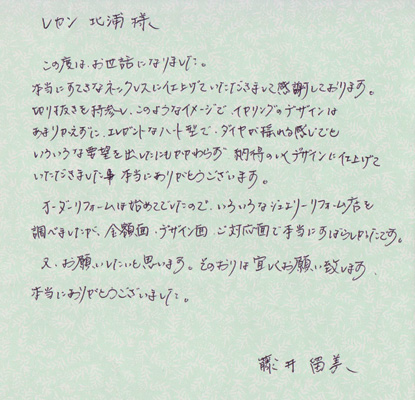 レカン 北浦 様
この度は、お世話になりました。
本当にすてきなネックレスに仕上げていただきまして感謝しております。
切り抜きを持参し、このようなイメージで イヤリングのデザインは
あまりかえずに、エレガントなハート型で、ダイヤが揺れる感じでと
いろいろな要望を出したにもかかわらず 納得のいくデザインに仕上げて
いただきました事 本当にありがとうございます。
オーダーリフォームは始めてでしたので、いろいろなジュエリーリフォーム店を
調べましたが、金額面・デザイン面・ご対応面で本当にすばらしかったです。
又、お願いしたいと思います。そのおりは宜しくお願い致します。
本当にありがとうございました。
藤井 留美